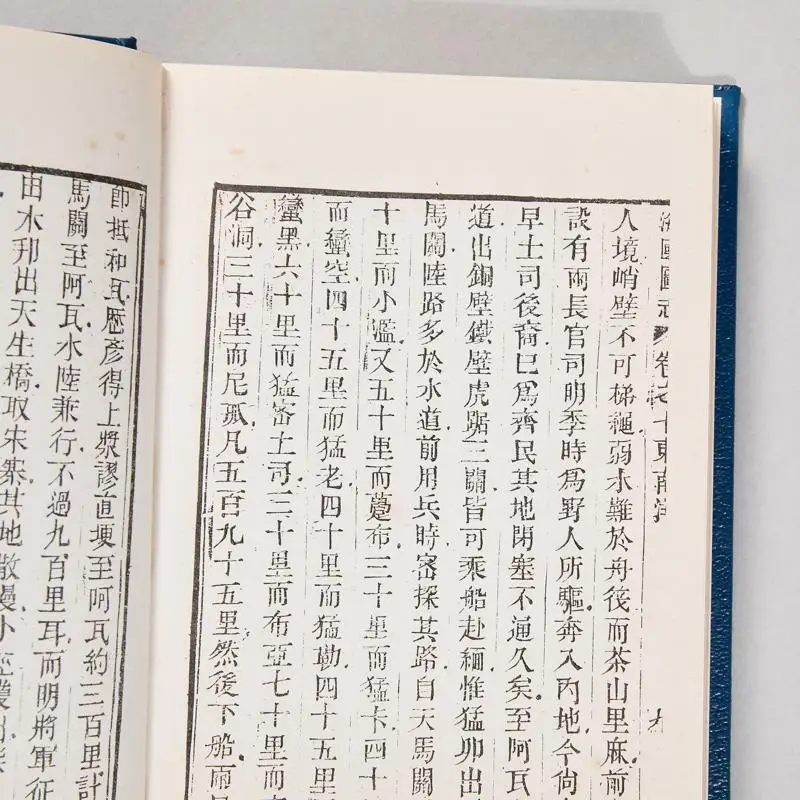 海國圖志 卷之十 東南洋 九
人境峭壁不可梯繩弱水難於舟筏而茶山里麻前
設有兩長官司明季時為野人所驅奔入內地今尚
早土司後裔巳為齊民其地閉塞不通久矣至阿瓦
道出銅壁鐵壁虎踞三關皆可乘船赴緬惟猛卯出
馬關陸路多於水道前用兵時密探其路自天馬關
十里而小濫又五十里而躉布三十里而猛卡四十
而蠻空四十五里而猛老四十里而猛勒四十五里
蠻黑六十里而猛密土司三十里而布亞七十里而
谷洞三十里而尼孤凡五百九十五里然後下船兩
即抵和瓦歷彥得上漿謬直埂至阿瓦約三百里計
馬關至阿瓦水陸兼行不過九百里耳而明將軍征
由木邦出天生橋取宋寨其地散漫小徑叢出